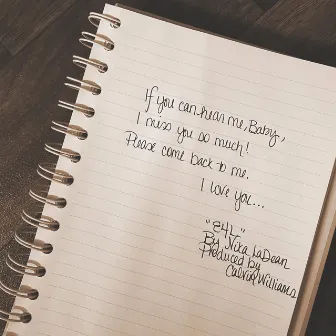 If you can hear me, Baby,
I miss you so much!
Please come back to me.
I love you...
"E4L"
By Nika LaDean
Produced by
Calvin Williams